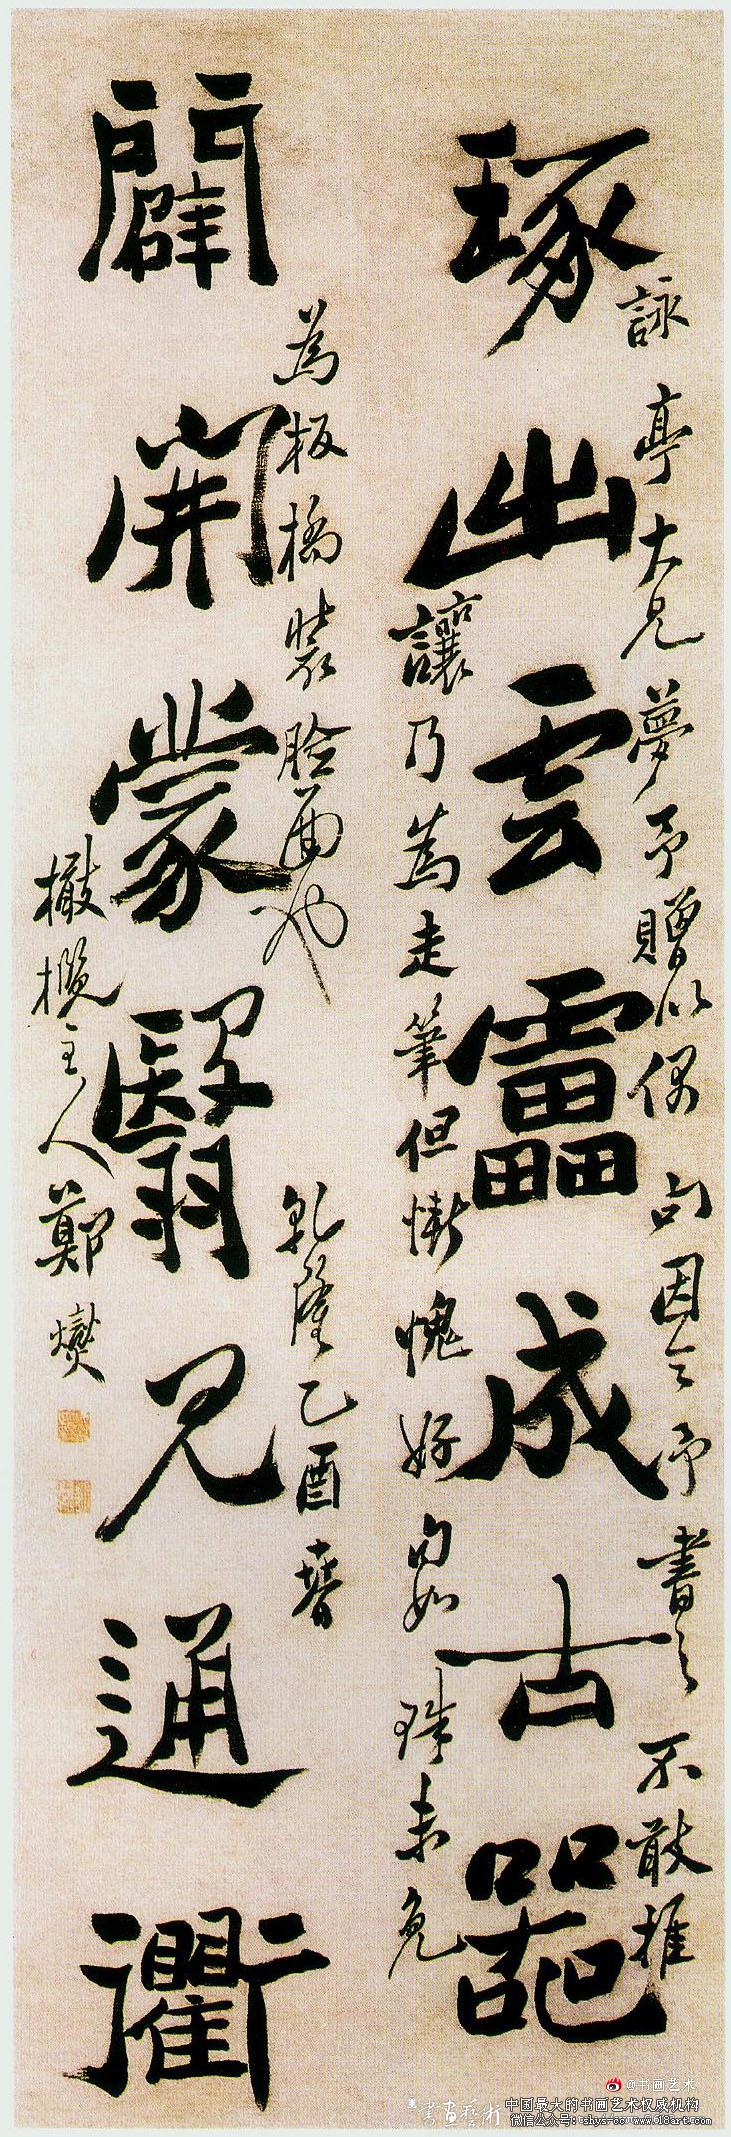 琢出雲雷成古器
詠亭大兄夢予贈以偶句因令予書之不敢推
讓乃為走筆但慚愧好句如珠未免
闢開蒙翳見通衢
為板橋裝臉面也
乾隆乙酉春
橄欖主人鄭燮
@书画艺术
書畫藝術
中国最大的书画艺术权威机构
微信公众号:tshys-cc www.618art.com